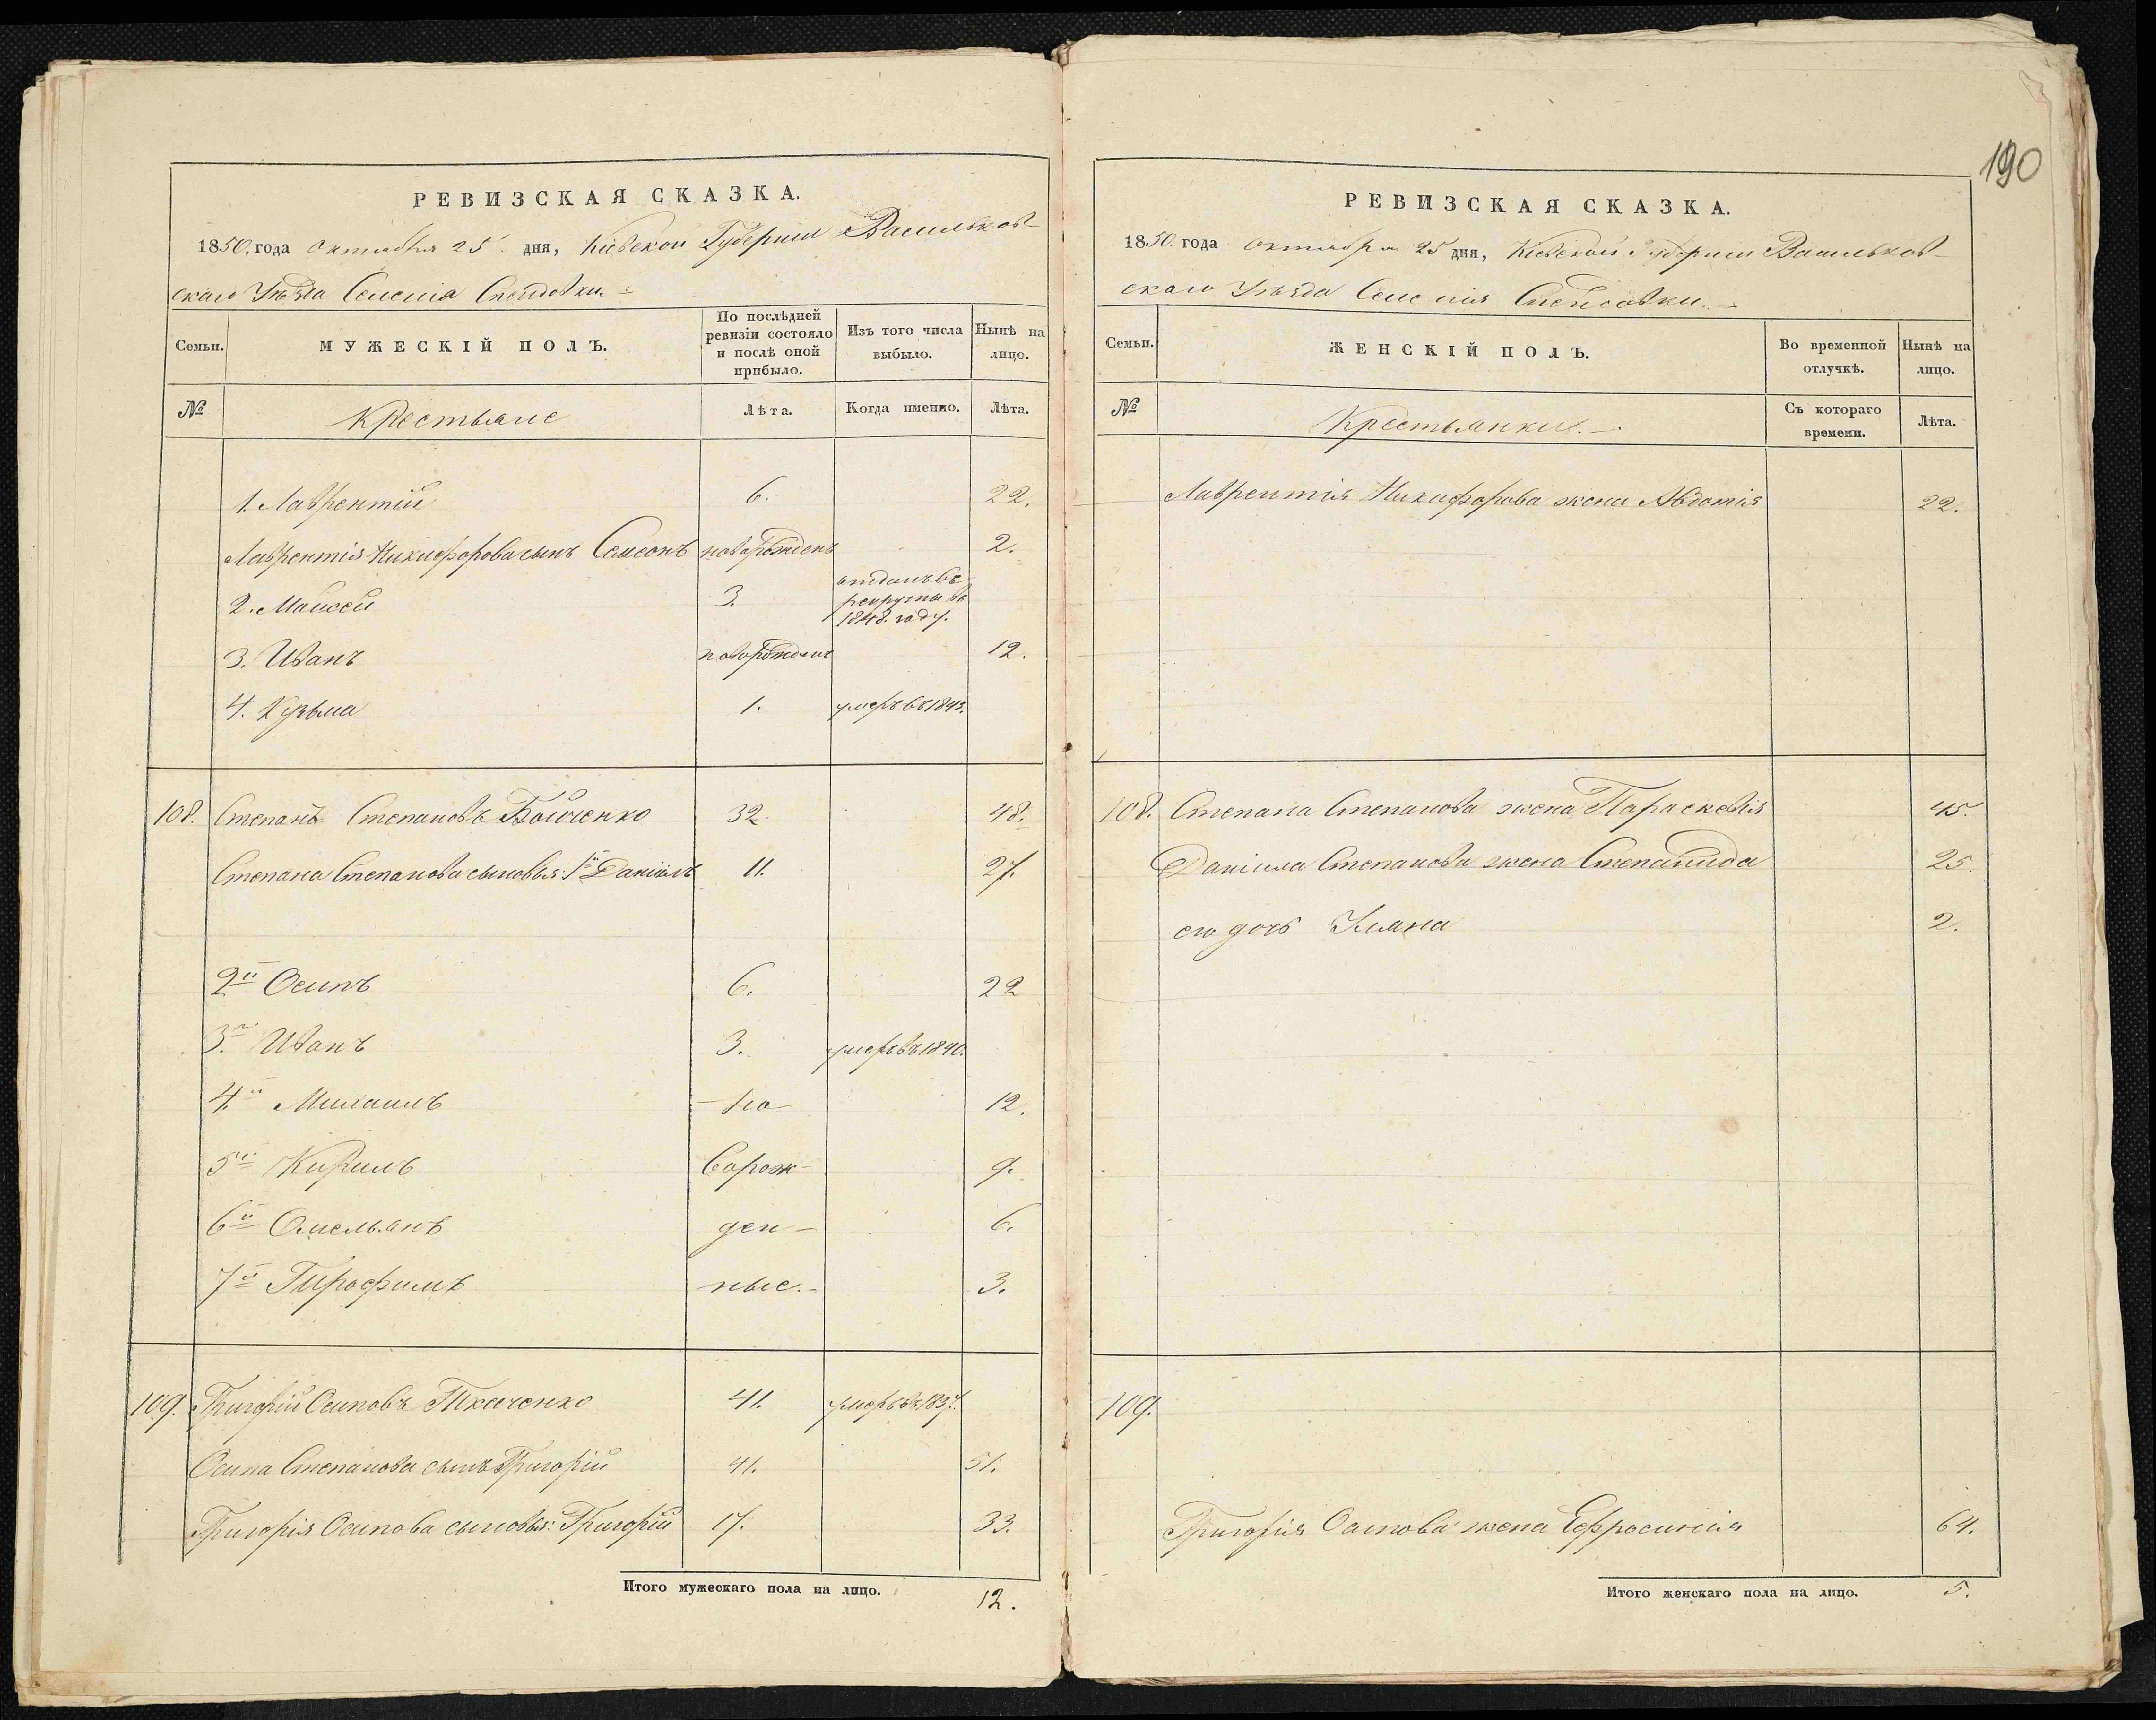 РЕВИЗСКАЯ СКАЗКА.
1850. года октября 25 дня, Кіевской Губерніи Васильков-
скаго Уѣзда Селенія
Семьи. МУЖЕСКІЙ ПОЛЪ. По послѣдней ревизіи состояло и послѣ оной прибыло. Изъ того числа выбыло. Нынѣ на лицо.
№ Крестьяне Лѣта. Когда именно. Лѣта.
1. Лаврентій 6. 22.
Лаврентія Никифорова сынъ Семенъ новорожденъ 2.
2. Мойсей 3. отданъ въ рекруты въ 1848. году.
3. Иванъ новорожденъ 12.
4. Кузьма 1. умеръ въ 1843.
108. Степанъ Степановъ Бойченко 32. 48.
Степана Степанова сыновья: 1й Даніилъ 11. 27.
2й Осипъ 6. 22
3й Иванъ 3. умеръ въ 1840.
4й Михаилъ - но 12.
5й Кирилъ ворож- 9.
6й Омельянъ ден- 6.
7й Трофимъ ные.- 3.
109. Григорій Осиповъ Ткаченко 41. умеръ въ 1837.
Осипа Степанова сынъ Григорій 41. 51.
Григорія Осипова сыновья: Григорій 17. 33.
Итого мужескаго пола на лицо. 12.
190
РЕВИЗСКАЯ СКАЗКА.
1850. года октября 25 дня, Кіевской Губерніи Васильков-
скаго Уѣзда Селенія
Семьи. ЖЕНСКІЙ ПОЛЪ. Во временной отлучкѣ. Нынѣ на лицо.
№ Крестьянки. Съ котораго времени. Лѣта.
Лаврентія Никифорова жена Авдотія 22.
108. Степана Степанова жена Параскевія 45.
Даніила Степанова жена Степанида 25.
его дочь Уляна 2.
109.
Григорія Осипова жена Ефросинія 64.
Итого женскаго пола на лицо. 5.